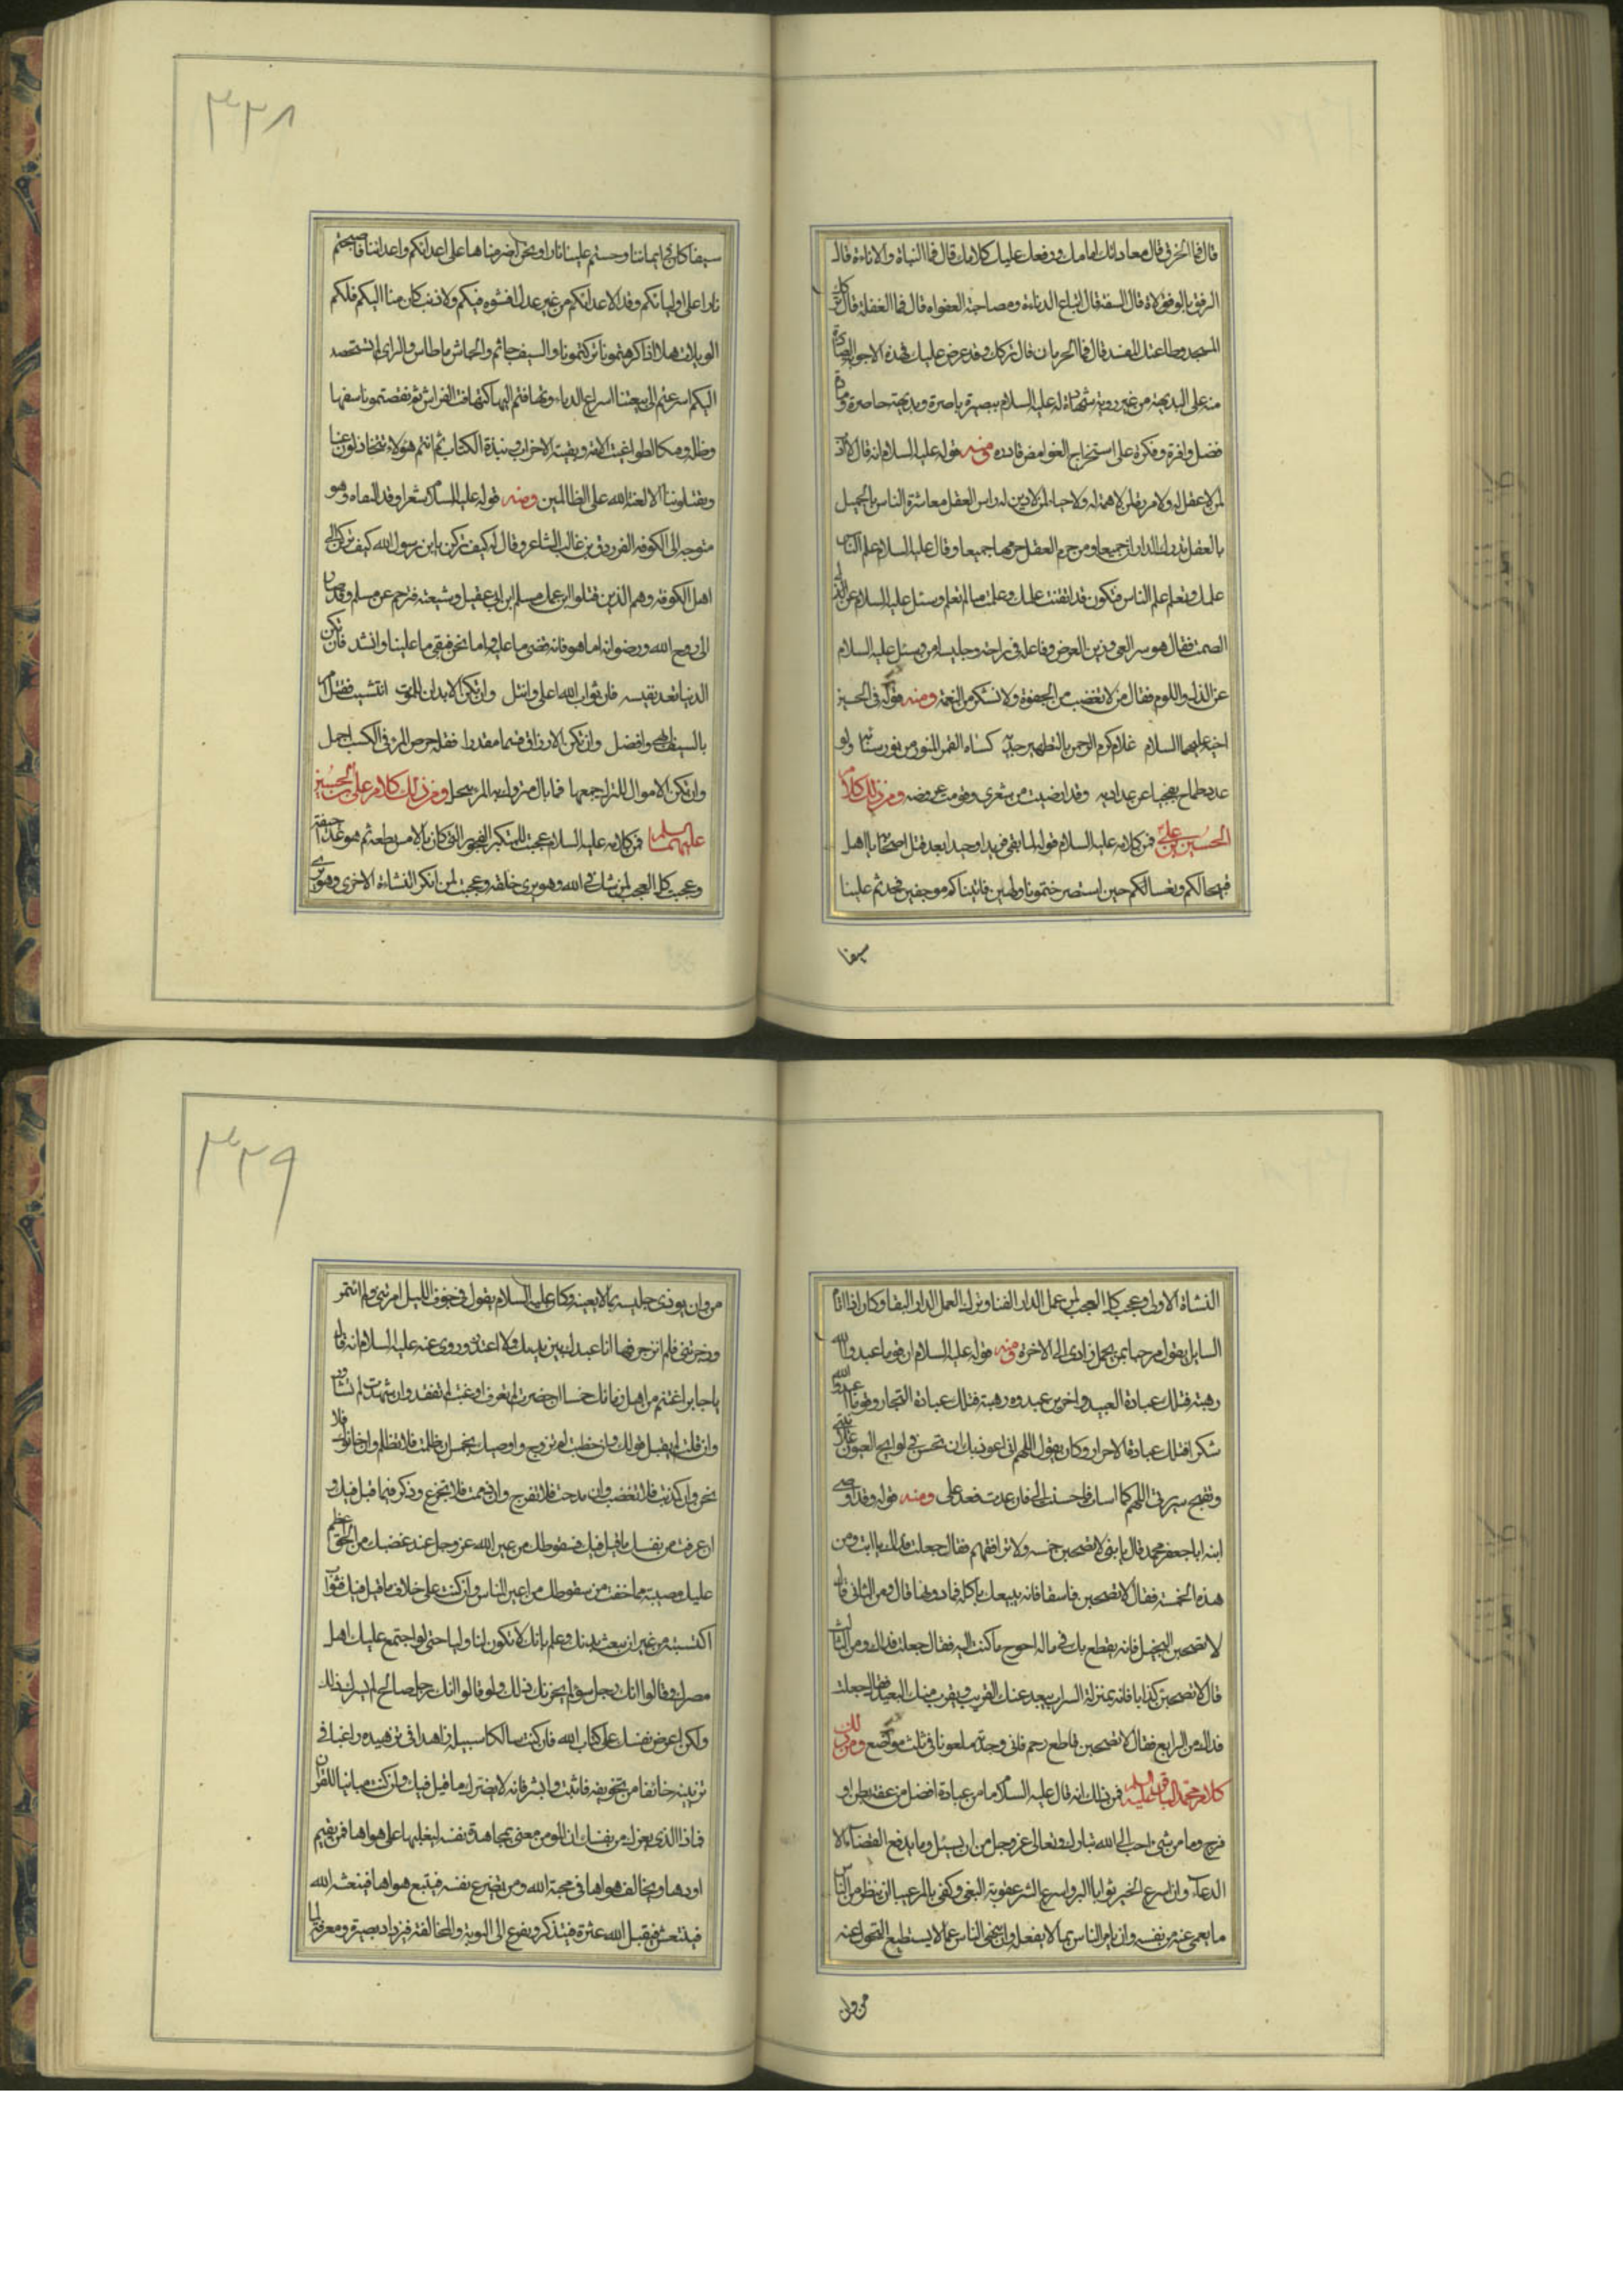 قال فما الخرق قال معاداتك امامك ورفعك عليك كلامك قال فما النباة والاناءة قال
الرفق بالوفق لاة قال السفه قال اتباع الدناءة ومصاحبة الغواه قال فما الغفلة قال ترك
المسجد وطاعتك المفسد قال فما الحرمان قال تركك وقد عرض عليك هذه الاجوبة الصادرة
منه على البديهة من غير روية شهادة له عليه السلام ببصيرة باصرة وبديهة حاضرة ومادة
فضل وافرة وفكرة على استخراج الغوامض قادره ومنه قوله عليه السلام انه قال لا ادب
لمن لا عقل له ولا مروة لمن لا همة له ولا حياء لمن لا دين له وراس العقل معاشرة الناس بالجميل
بالعقل تدرك الداران جميعا ومن حرم العقل حرمهما جميعا وقال عليه السلام علم الناس
علمك وتعلم علم الناس فتكون قد اتقنت علمك وعلمت ما لم تعلم وسئل عليه السلام عن
الصمت فقال هو ستر العي وزين العرض وفاعله في راحه وجليسه امن وسئل عليه السلام
عن الذل واللوم فقال من لا تغضب من الجفوة ولا تشكر من النعمة ومنه قوله في الحسين
اخيه عليهما السلام غلام كرم الرحمن بالتطهير جديه كساه القمر المنور من نور سنائيه ولو
عدد طماح نفحنا عن عداديه وقد ارضيت من شعري وقومت عروضه ومن ذلك كلام
الحسين بن علي فمن كلامه عليه السلام قوله لما بقى فريدا وحيدا بعد قتل اصحابه يا اهل
قبحا لكم وتعسا لكم حين استصرختمونا ولهين فاتيناكم موجفين فشحذتم علينا
سيفا
٣٣٨
سيفا كان في ايماننا وحششتم علينا نارا ونحن اضرمناها على اعدائكم واعدائنا فاصبحتم
نارا على اوليائكم وقد الاعدائكم من غير عدل افشوه فيكم ولا ذنب كان منا اليكم فلكم
الويلات هلا اذا كرهتمونا تركتمونا والسيف جاثم والجاش ما طاش والراى لم تستحصد
اليكم اسرعتم الى بيعتنا اسراع الدباء وتهافتم اليها كتهافت الفراش ثم نقضتمونا سفها
وظلة ومكا لطواغيت الامة وبقية الاحزاب ونبذة الكتاب ثم انتم هؤلاء تتخاذلون عنا
وتقتلوننا الا لعنة الله على الظالمين ومنه قوله عليه السلام شعرا وقد التقاه وهو
متوجه الى الكوفه الفرزدق بن غالب الشاعر وقال له كيف تركن يا ابن رسول الله كيف تركن الى
اهل الكوفة وهم الذين قتلوا ابن عمك مسلم ابن ابي عقيل وشيعته فترحم عن مسلم وقال صار
الى روح الله ورضوانه اما هو فانه قضى ما عليه واما نحن فبقى ما علينا وانشد فان تكن
الدنيا تعد نفيسه فان ثواب الله اعلى وانبل وان تكن الابدان للموت انشيت فقتل امرء
بالسيف في الله افضل وان تكن الارزاق قسما مقدرا فقلة حرص المرء في الكسب اجمل
وان تكن الاموال للترك جمعها فما بال متروك به المرء يبخل ومن ذلك كلام علي بن الحسين
عليهما السلام فمن كلامه عليه السلام عجبت للمتكبر الفجور الذي كان بالامس نطفه ثم هو غدا جيفة
وعجبت كل العجب لمن شك في الله وهو يرى خلقه وعجبت لمن انكر النشاءة الاخرى وهو يرى
النشاة الاولى وعجب كل العجب لمن عمل لدار الفنا وترك العمل لدار البقا وكان اذا اتاه
السايل يقول مرحبا بمن يحمل زادى الى الاخرة ومنه قوله عليه السلام ان قوما عبدوا الله
رهبة فتلك عبادة العبيد واخرين عبدوه رهبة فتلك عبادة التجار وقوما عبدوا الله
شكرا فتلك عبادة الاحرار وكان يقول اللهم انى اعوذ بك ان تحسن في لوايح العيون علانيتي
وتقبح سريرتي اللهم كما اسات فاحسنت الى فان عدت فعد على ومنه قوله وقد اوصى
ابنه ابا جعفر محمد قال يا بنى لا تصحبن خمسه ولا ترافقهم فقال جعلت فداك يا ابت ومن
هذه الخمسة فقال لا تصحبن فاسقا فانه يبيعك باكلة فما دونها قال ومن الثاني قال
لا تصحبن البخيل فانه يقطع بك في ماله احوج ما كنت اليه فقال جعلت فداك ومن الثالث
قال لا تصحبن كذابا فانه بمنزلة السراب يبعد عنك القريب ويقرب منك البعيد فقال جعلت
فداك من الرابع فقال لا تصحبن قاطع رحم فانى وجدته ملعونا في ثلث مواضع ومن ذلك
كلام محمد الباقر عليه السلام فمن ذلك انه قال عليه السلام ما من عبادة افضل من عفة بطن او
فرج وما من شيء احب الى الله تبارك وتعالى عز وجل من ان يسئل وما يدفع القضاء الا
الدعاء وان اسرع الخير ثوابا البر واسرع الشر عقوبة البغي وكفى بالمرء عيبا ان ينظر من الناس
ما يعمى عنه من نفسه وان يامر الناس بما لا يفعله وان ينهى الناس عما لا يستطيع التحول عنه
من وان
٣٣٩
من وان يوذى جليسه بما لا يعينه وكان عليه السلام يقول في جوف الليل امرتنى ولم ائتمر
وزجرتنى فلم انزجر فها انا عبدك بين يديك ولا اعتذر وروى عنه عليه السلام انه قال
يا جابر اغتنم من اهل زمانك خمسا ان حضرت لم تعرف او غبت لم تفتقد وان شهدت لم تشاور
وان قلت لم يقبل قولك وان خطبت لم تزوج واوصيك بخمس ان ظلمت فلا تظلم وان خانوك فلا
تخن وان كذبت فلا تغضب وان مدحت فلا تفرح وان ذممت فلا تجزع وفكر فيما قيل فيك و
ان عرفت من نفسك ما قيل فيك فسقوطك من عين الله عز وجل عند غضبك من الحق اعظم
عليك مصيبة مما خفت من سقوطك من اعين الناس وان كنت على خلاف ما قيل فيك فثواب
اكتسبته من غير ان تبعث بدنك وعلم بانك لا تكون لنا وليا حتى لو اجتمع عليك اهل
مصرك وقالوا انك رجل سوء لم يحزنك ذلك ولو قالوا انك رجل صالح لم يسرك ذلك
ولكن اعرض نفسك على كتاب الله فان كنت سالكا سبيله زاهدا في تزهيده راغبا في
ترغيبه خائفا من تخويفه فاثبت وابشر فانه لا يضرك ما قيل فيك وان كنت مباينا للقران
فماذا الذي يعزك من نفسك ان المومن معنى بمجاهدة نفسه ليغلبها على هواها فمرة يقيم
اودها ويخالف هواها في محبة الله ومرة تصرع نفسه فيتبع هواها فينعشه الله
فينتعش فيقبل الله عثرة فيتذكر ويفزع الى التوبة والمخالفة فيزداد بصيرة ومعرفة لما